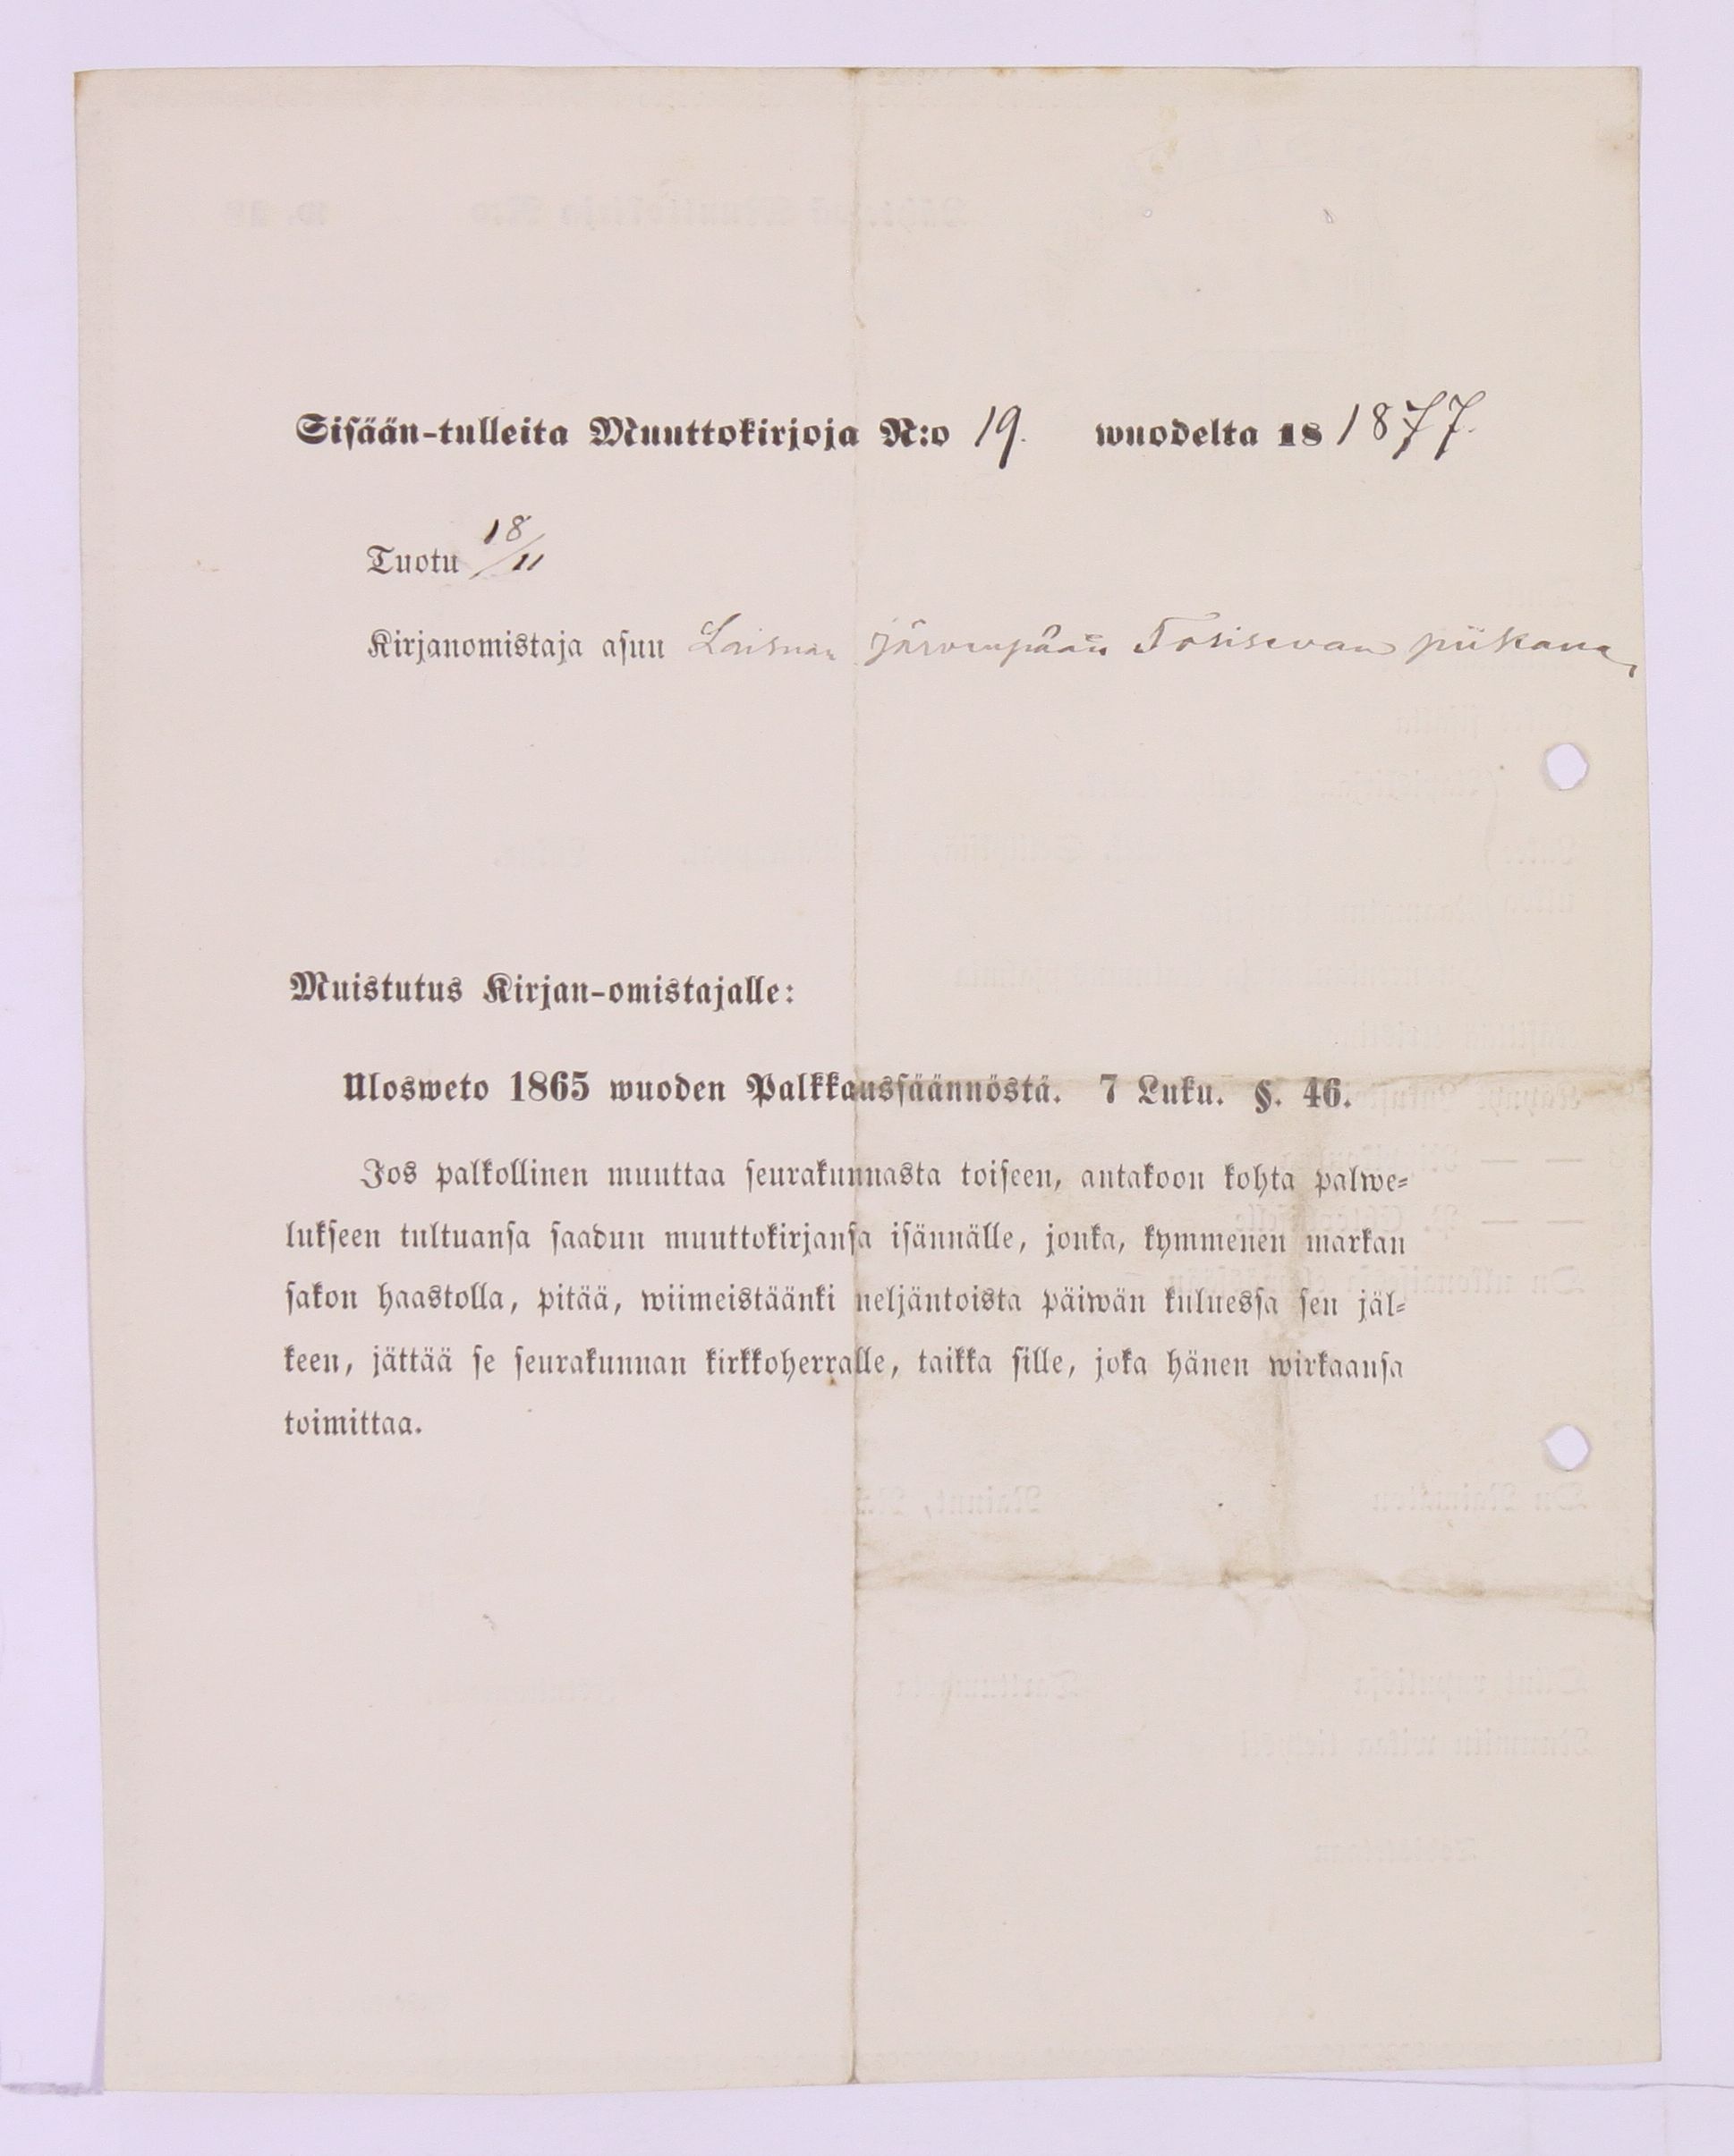 Sisään-tulleita Muuttokirjoja N:o 19. wuodelta 18 1877.
Tuotu 18/11
Kirjanomistaja asuu järvenpään piikana,
Muistutus Kirjan-omistajalle:
Ulosweto 1865 wuoden Palkkaussäännöstä. 7 Luku. §. 46.
Jos palkollinen muuttaa seurakunnasta toiseen, antakoon kohta palwe-
lukseen tultuansa saadun muuttokirjansa isännälle, jonka, kymmenen markan
sakon haastolla, pitää, wiimeistäänki neljäntoista päiwän kuluessa sen jäl-
keen, jättää se seurakunnan kirkkoherralle, taikka sille, joka hänen wirkaansa
toimittaa.